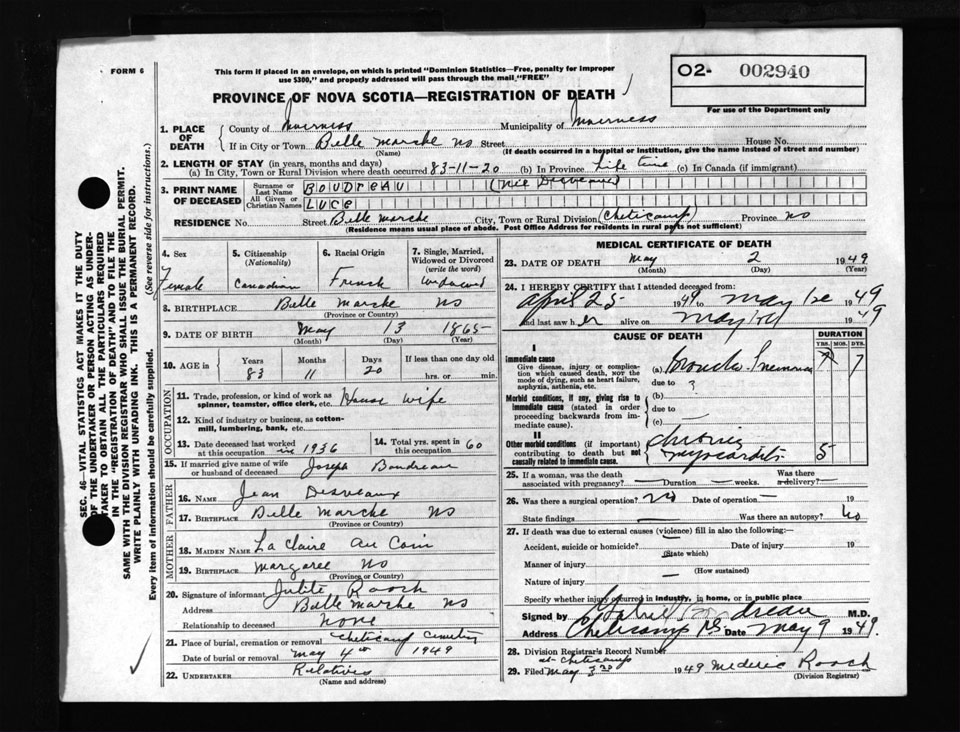 FORM 6
This form if placed in an envelope, on which is printed "Dominion Statistics—Free, penalty for improper
use $300," and properly addressed will pass through the mail "FREE"
PROVINCE OF NOVA SCOTIA—REGISTRATION OF DEATH
O2- 002940
For use of the Department only
1. PLACE OF DEATH
County of Inverness Municipality of Inverness
If in City or Town Belle Marche NS Street House No.
(Name) (If death occurred in a hospital or institution, give the name instead of street and number)
2. LENGTH OF STAY (in years, months and days)
(a) In City, Town or Rural Division where death occurred 83-11-20 (b) In Province Life time (c) In Canada (if immigrant)
3. PRINT NAME OF DECEASED
Surname or Last Name BOUDREAU (Nee Desveaux)
All Given or Christian Names LUCE
RESIDENCE No. Street Belle Marche City, Town or Rural Division (Cheticamp) Province NS
(Residence means usual place of abode. Post Office Address for residents in rural parts not sufficient)
4. Sex
Female
5. Citizenship
(Nationality)
Canadian
6. Racial Origin
French
7. Single, Married,
Widowed or Divorced
(write the word)
widowed
8. BIRTHPLACE Belle Marche NS
(Province or Country)
9. DATE OF BIRTH May 13 1865
(Month) (Day) (Year)
10. AGE in Years Months Days If less than one day old
83 11 20 hrs. or min.
OCCUPATION
11. Trade, profession, or kind of work as
spinner, teamster, office clerk, etc. House wife
12. Kind of industry or business, as cotton-
mill, lumbering, bank, etc.
13. Date deceased last worked
at this occupation in 1936
14. Total yrs. spent in
this occupation 60
15. If married give name of wife
or husband of deceased Joseph Boudreau
FATHER
16. NAME Jean Desveaux
17. BIRTHPLACE Belle Marche NS
(Province or Country)
MOTHER
18. MAIDEN NAME La Claire Au Coin
19. BIRTHPLACE Margaree NS
(Province or Country)
20. Signature of informant Julite Roach
Address Belle Marche NS
Relationship to deceased none
21. Place of burial, cremation or removal Cheticamp Cemetery
Date of burial or removal May 4th 1949
22. UNDERTAKER Relatives
(Name and address)
MEDICAL CERTIFICATE OF DEATH
23. DATE OF DEATH May 2 1949
(Month) (Day) (Year)
24. I HEREBY CERTIFY that I attended deceased from:
April 25 1949 to May 1st 1949
and last saw her alive on May 1st 1949
CAUSE OF DEATH
DURATION
YRS. MOS. DYS.
I
Immediate cause
Give disease, injury or complica-
tion which caused death, NOT the
mode of dying, such as heart failure,
asphyxia, asthenia, etc.
(a) Broncho Pneumonia 7
due to ?
Morbid conditions, if any, giving rise to
immediate cause (stated in order
proceeding backwards from im-
mediate cause).
(b)
due to
(c)
II
Other morbid conditions (if important)
contributing to death but not
causally related to immediate cause.
Chronic
myocarditis 5
25. If a woman, was the death
associated with pregnancy? — Duration — weeks. Was there
a delivery? —
26. Was there a surgical operation? No Date of operation — 19
State findings Was there an autopsy? No
27. If death was due to external causes (violence) fill in also the following:
Accident, suicide or homicide? Date of injury 19
(State which)
Manner of injury
(How sustained)
Nature of injury —
Specify whether injury occurred in industry, in home, or in public place
Signed by Gabriel Boudreau M.D.
Address Cheticamp NS. Date May 9 1949.
28. Division Registrar's Record Number
at Cheticamp
29. Filed May 3rd 1949 Mederic Roach
(Division Registrar)
SEC. 46—VITAL STATISTICS ACT MAKES IT THE DUTY
OF THE UNDERTAKER OR PERSON ACTING AS UNDER-
TAKER TO OBTAIN ALL THE PARTICULARS REQUIRED
IN THE "REGISTRATION OF DEATH" AND TO FILE THE
SAME WITH THE DIVISION REGISTRAR WHO SHALL ISSUE THE BURIAL PERMIT.
WRITE PLAINLY WITH UNFADING INK. THIS IS A PERMANENT RECORD.
Every item of information should be carefully supplied. (See reverse side for instructions.)